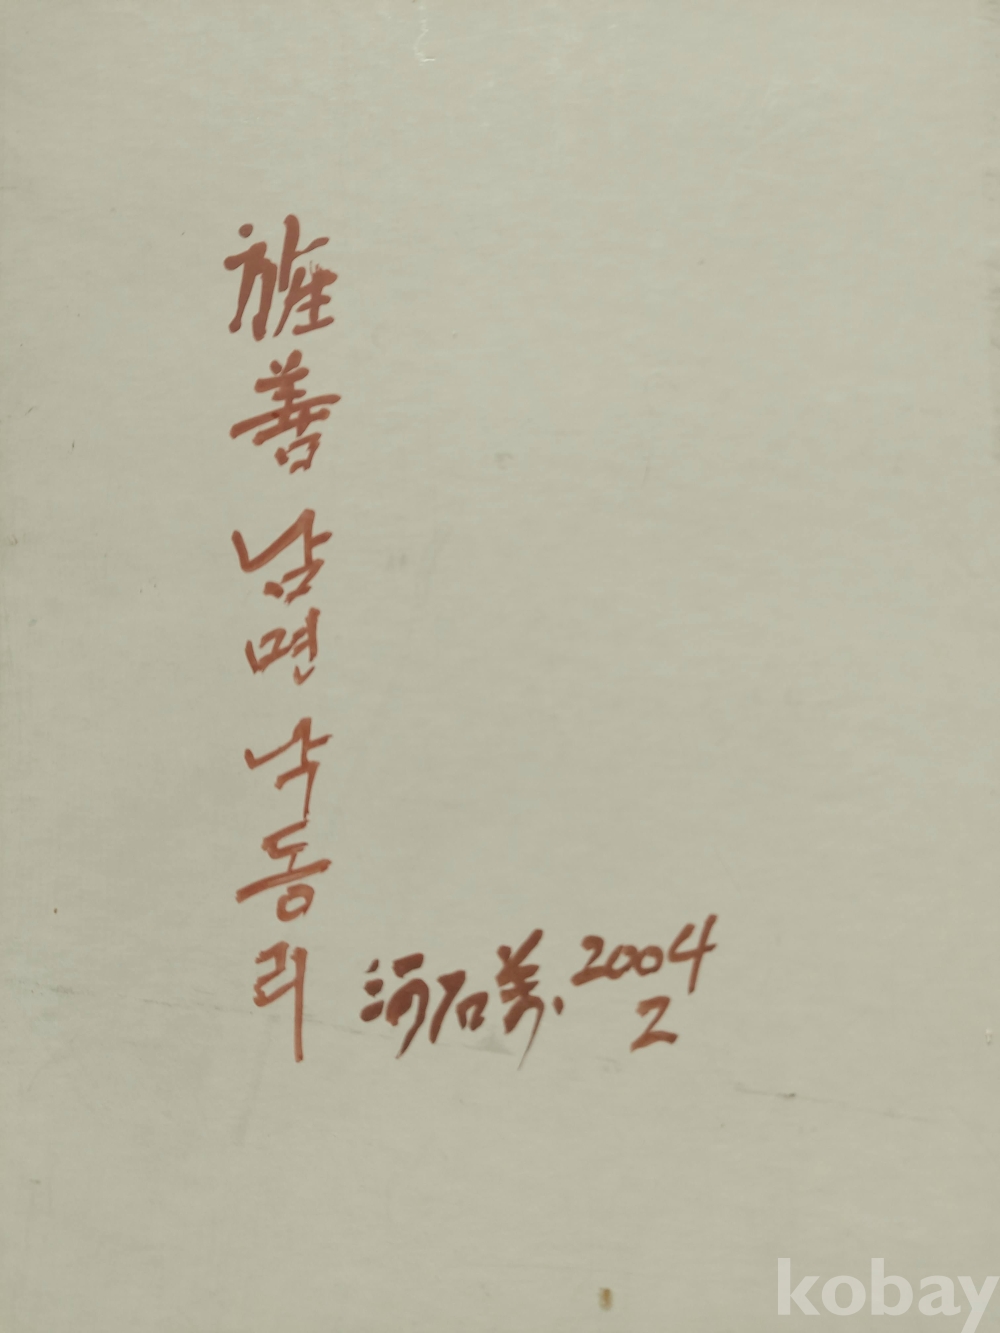 旌善 남면 낙동리
河石美. 2004
2
kobay